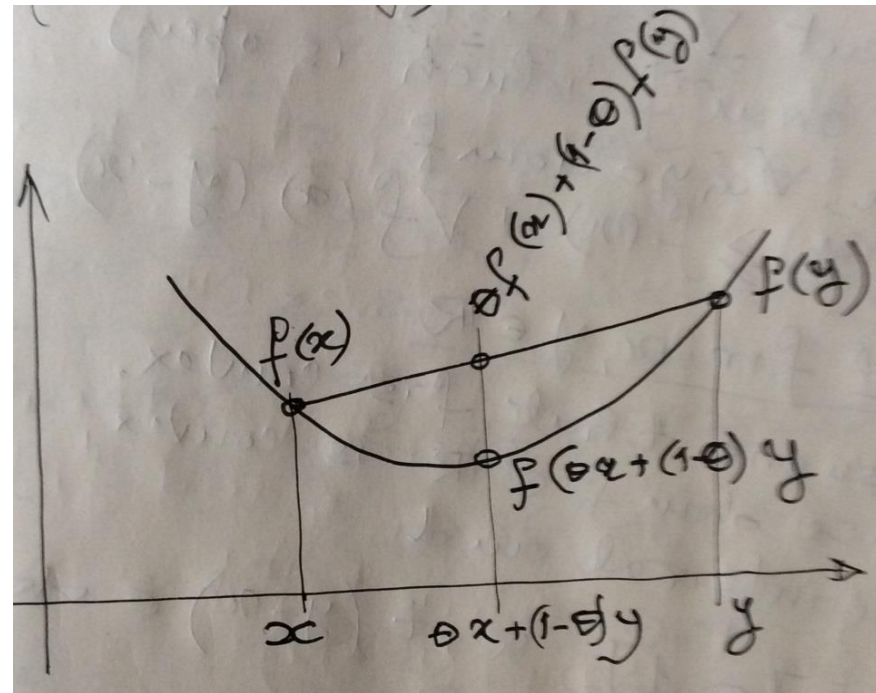 θf(x)+(1-θ)f(y)
f(x)
f(y)
f(θx+(1-θ)y
x
θx+(1-θ)y
y